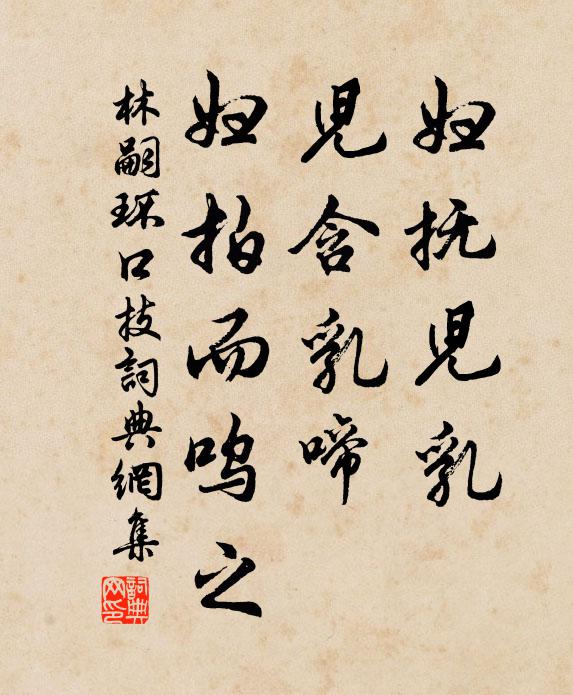 妇抚儿乳
儿含乳啼
妇拍而呜之
林嗣环口技詞典網集
詞典
网印